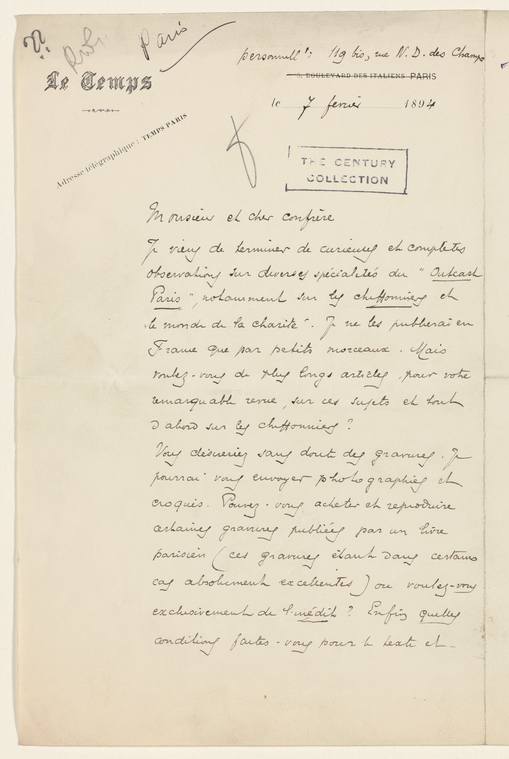 Paris
personnell^t: 119 bis, rue N. D. des Champs
Le Temps
5, BOULEVARD DES ITALIENS PARIS
le 7 février 1894
Adresse télégraphique: TEMPS PARIS
THE CENTURY
COLLECTION
Monsieur et cher confrère
Je viens de terminer de curieuses et complètes
observations sur diverses spécialités du "Outcast
Paris", notamment sur les chiffonniers et
"le monde de la charité". Je ne les publierai en
France que par petits morceaux. Mais
voulez-vous de plus longs articles, pour votre
remarquable revue, sur ces sujets et tout
d'abord sur les chiffonniers ?
Vous désireriez sans doute des gravures. Je
pourrai vous envoyer photographies et
croquis. Pouvez-vous acheter et reproduire
certaines gravures publiées par un livre
parisien (ces gravures étant dans certains
cas absolument excellentes) ou voulez-vous
exclusivement de l'inédit ? Enfin quelles
conditions faites-vous pour le texte et